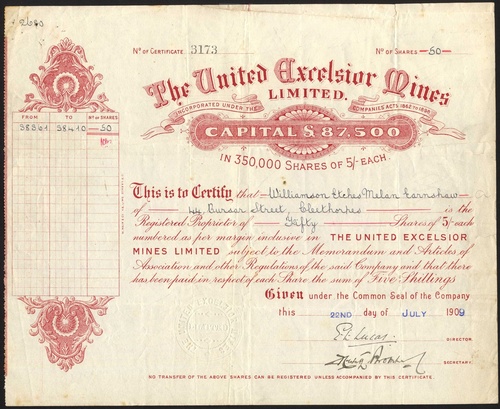 No. OF CERTIFICATE 3173 No. OF SHARES -50-
The United Excelsior Mines
LIMITED.
INCORPORATED UNDER THE COMPANIES ACTS, 1862 TO 1898.
CAPITAL £87,500
IN 350,000 SHARES OF 5/- EACH.
FROM TO No. OF SHARES
58361 58410 50
This is to Certify that Williamson Etches Melan Earnshaw
of 44 Bursar Street, Cleethorpes is the
Registered Proprietor of Fifty Shares of 5/- each
numbered as per margin inclusive in THE UNITED EXCELSIOR
MINES LIMITED subject to the Memorandum and Articles of
Association and other Regulations of the said Company and that there
has been paid in respect of each Share the sum of Five Shillings
Given under the Common Seal of the Company
this 22ND day of JULY 1909
DIRECTOR.
SECRETARY.
NO TRANSFER OF THE ABOVE SHARES CAN BE REGISTERED UNLESS ACCOMPANIED BY THIS CERTIFICATE.